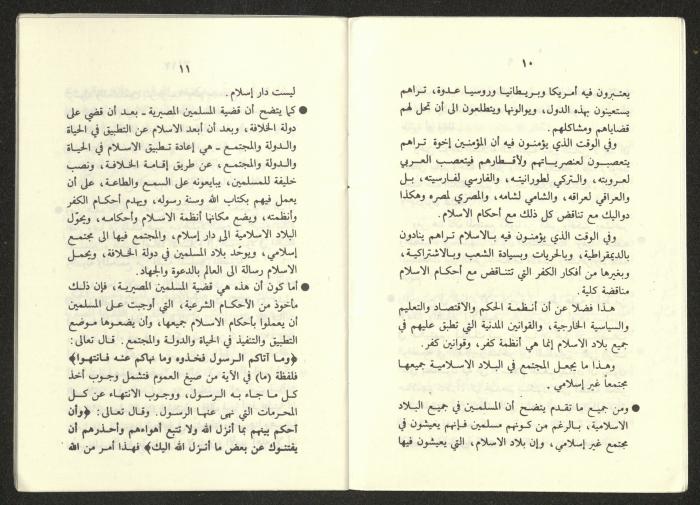 ١٠
يعتبرون فيه أمريكا وبريطانيا وروسيا عدوة، تراهم
يستعينون بهذه الدول، ويوالونها ويتطلعون الى أن تحل لهم
قضاياهم ومشاكلهم.
وفي الوقت الذي يؤمنون فيه أن المؤمنين إخوة تراهم
يتعصبون لعنصرياتهم ولأقطارهم فيتعصب العربي
لعروبته، والتركي لطورانيته، والفارسي لفارسيته، بل
والعراقي لعراقه، والشامي لشامه، والمصري لمصره وهكذا
دواليك مع تناقض كل ذلك مع أحكام الاسلام.
وفي الوقت الذي يؤمنون فيه بالاسلام تراهم ينادون
بالديمقراطية، وبالحريات وبسيادة الشعب وبالاشتراكية،
وبغيرها من أفكار الكفر التي تتناقض مع أحكام الاسلام
مناقضة كلية.
هذا فضلا عن أن أنظمة الحكم والاقتصاد والتعليم
والسياسية الخارجية، والقوانين المدنية التي تطبق عليهم في
جميع بلاد الاسلام إنما هي أنظمة كفر، وقوانين كفر.
وهذا ما يجعل المجتمع في البلاد الاسلامية جميعها
مجتمعاً غير إسلامي.
● ومن جميع ما تقدم يتضح أن المسلمين في جميع البلاد
الاسلامية، بالرغم من كونهم مسلمين فإنهم يعيشون في
مجتمع غير إسلامي، وإن بلاد الاسلام، التي يعيشون فيها
١١
ليست دار إسلام.
● كما يتضح أن قضية المسلمين المصيرية - بعد أن قضي على
دولة الخلافة، وبعد أن أبعد الاسلام عن التطبيق في الحياة
والدولة والمجتمع - هي إعادة تطبيق الاسلام في الحياة
والدولة والمجتمع، عن طريق إقامة الخلافة، ونصب
خليفة للمسلمين، يبايعونه على السمع والطاعة، على أن
يعمل فيهم بكتاب الله وسنة رسوله، ويهدم أحكام الكفر
وأنظمته، ويضع مكانها أنظمة الاسلام وأحكامه، ويحوّل
البلاد الاسلامية الى دار إسلام، والمجتمع فيها الى مجتمع
إسلامي، ويوحّد بلاد المسلمين في دولة الخلافة، ويحمل
الاسلام رسالة الى العالم بالدعوة والجهاد.
● أما كون أن هذه هي قضية المسلمين المصيرية، فإن ذلك
مأخوذ من الأحكام الشرعية، التي أوجبت على المسلمين
أن يعملوا بأحكام الاسلام جميعها، وأن يضعوها موضع
التطبيق والتنفيذ في الحياة والدولة والمجتمع. قال تعالى:
﴿وما آتاكم الرسول فخذوه وما نهاكم عنه فانتهوا﴾
فلفظة (ما) في الآية من صيغ العموم فتشمل وجوب أخذ
كل ما جاء به الرسول، ووجوب الانتهاء عن كل
المحرمات التي نهى عنها الرسول. وقال تعالى: ﴿وأن
أحكم بينهم بما أنزل الله ولا تتبع أهواءهم وأحذرهم أن
يفتنوك عن بعض ما أنزل الله اليك﴾ فهذا أمر من الله